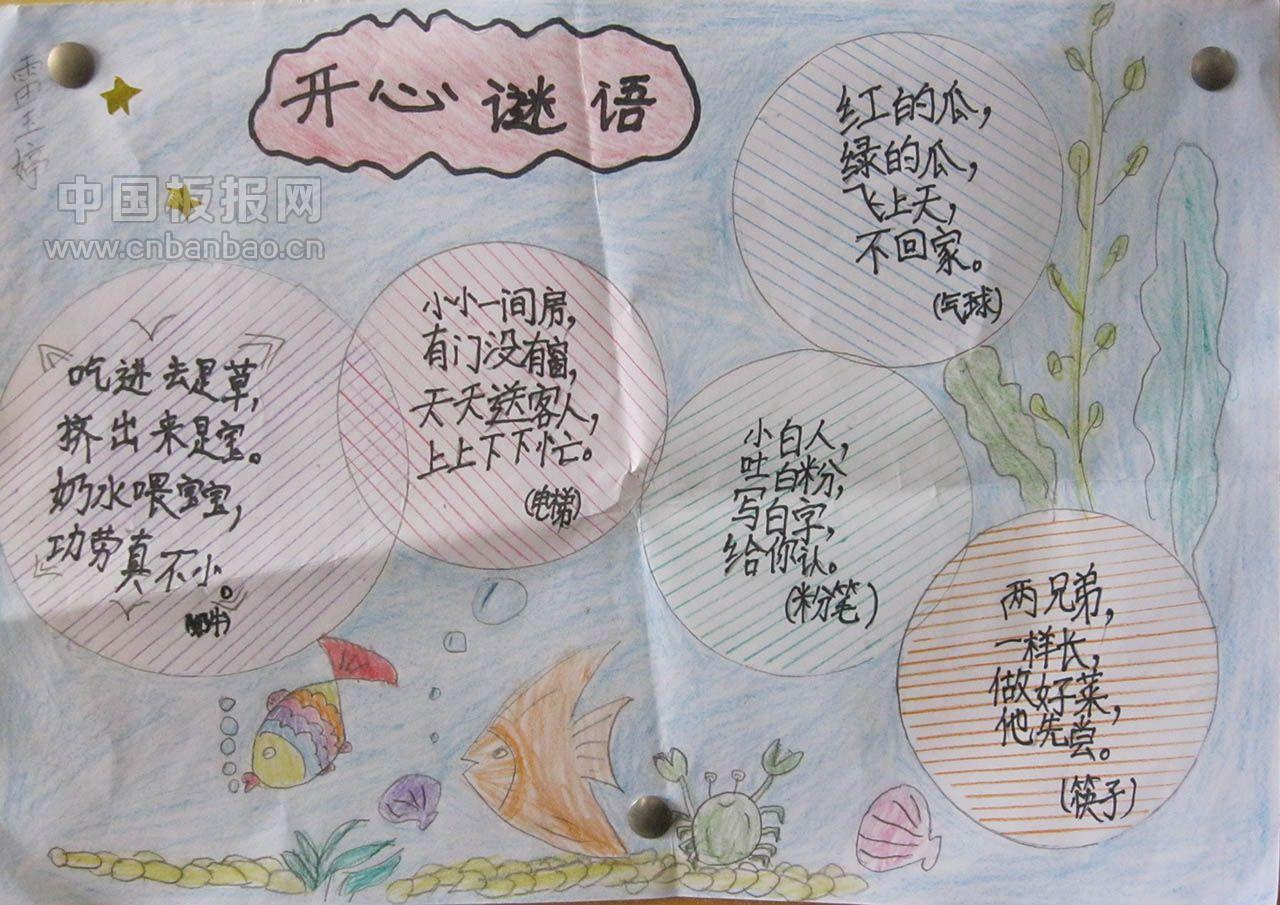 开心谜语
雷玉婷
中国板报网
www.cnbanbao.cn
红的瓜，
绿的瓜，
飞上天，
不回家。
（气球）
小小一间房，
有门没有窗，
天天送客人，
上上下下忙。
（电梯）
吃进去是草，
挤出来是宝。
奶水喂宝宝，
功劳真不小。
（奶牛）
小白人，
吐白粉，
写白字，
给你认。
（粉笔）
两兄弟，
一样长，
做好菜，
他先尝。
（筷子）